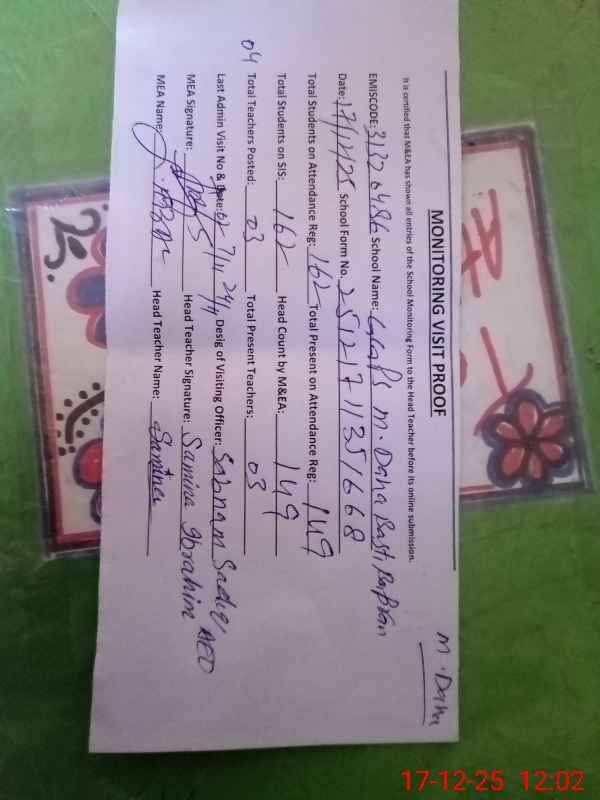 M. Daha
MONITORING VISIT PROOF
It is certified that M&EA has shown all entries of the School Monitoring Form to the Head Teacher before its online submission.
EMISCODE: 31320486 School Name: M. Daha Basti
Date: 17/12/25 School Form No. 2512171135 1668
Total Students on Attendance Reg: 162 Total Present on Attendance Reg: 149
Total Students on SIS: 162 Head Count by M&EA: 149
04 Total Teachers Posted: 03 Total Present Teachers: 03
Last Admin Visit No & Date: Desig of Visiting Officer: Sabnam AEO
MEA Signature: Head Teacher Signature: Samina Ibrahim
MEA Name: Head Teacher Name: Samina
25.
17-12-25 12:02